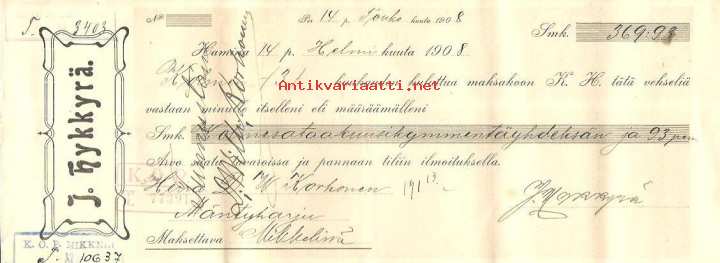 S. 3403
J. Hykkyrä.
K. O. P. MIKKELI
S. № 10637
№
Per 14 p. Touko kuuta 1908
Smk. 369:93
Hamina 14 p. Helmi kuuta 1908
kuukauden kuluttua maksakoon K. H. tätä vekseliä
vastaan minulle itselleni eli määräämälleni
Smk. Kolmesataakuusikymmentäyhdeksän ja 93 pen
Arvo saatu tavaroissa ja pannaan tiliin ilmoituksella.
Herra W Korhonen
Mäntyharju
Maksettava Mikkelissä
J. Hykkyrä
Korhonen
Antikvariaatti.net